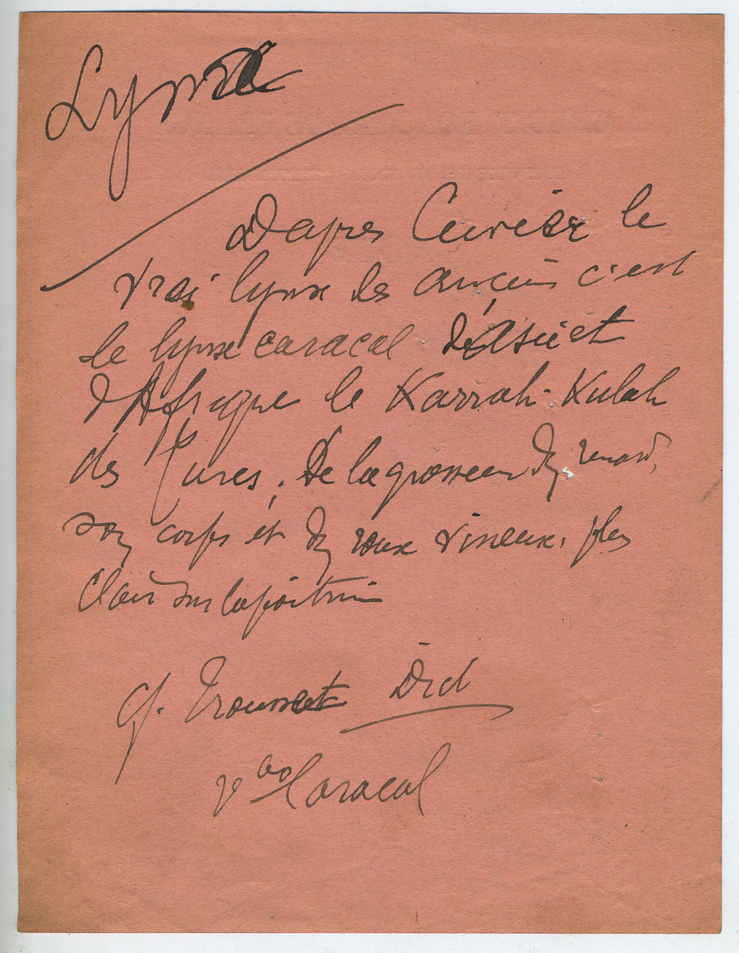 Lynx
Dapres Cuvier le
vrai lynx des anciens c'est
le lynx caracal d'Asie et
d'Afrique le Karrah-Kulah
des Turcs. De la grosseur d'un renard,
son corps est d'un roux vineux, plus
clair sur la poitrine
cf. Trousset Dict
v° Caracal